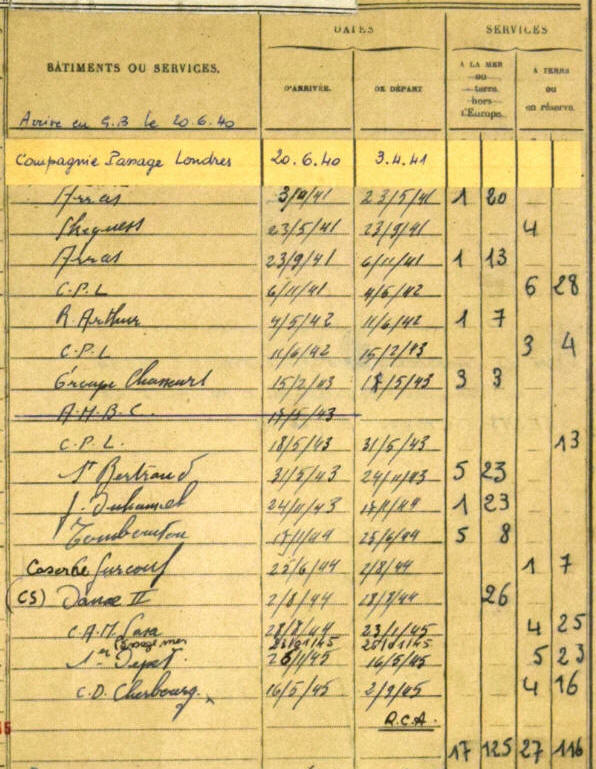 DATES SERVICES
BÂTIMENTS OU SERVICES. D'ARRIVÉE. DE DÉPART A LA MER ou terre hors d'Europe. A TERRE ou en réserve.
Arrive en G.B le 20.6.40
Compagnie Passage Londres 20.6.40 3.4.41
Arras 3/4/41 23/5/41 1 20
23/5/41 23/9/41 4
Arras 23/9/41 6/11/41 1 13
C.P.L 6/11/41 4/5/42 6 28
R. Arthur 4/5/42 11/6/42 1 7
C.P.L 11/6/42 15/2/43 3 4
Groupe Chasseurs 15/2/43 18/5/43 3 3
A.M.B.C. 18/5/43
C.P.L. 18/5/43 31/5/43 13
1er Bertrand 31/5/43 24/11/43 5 23
J. Duhamel 24/11/43 17/1/44 1 23
Tombouctou 17/1/44 25/6/44 5 8
Caserne Surcouf 25/6/44 2/8/44 1 7
(CS) II 2/8/44 28/8/44 26
C.A.M. 28/8/44 23/1/45 4 25
1er Depot. 23/1/45 16/5/45 5 23
C.D. Cherbourg. 16/5/45 2/9/45 4 16
R.C.A.
17 125 27 116